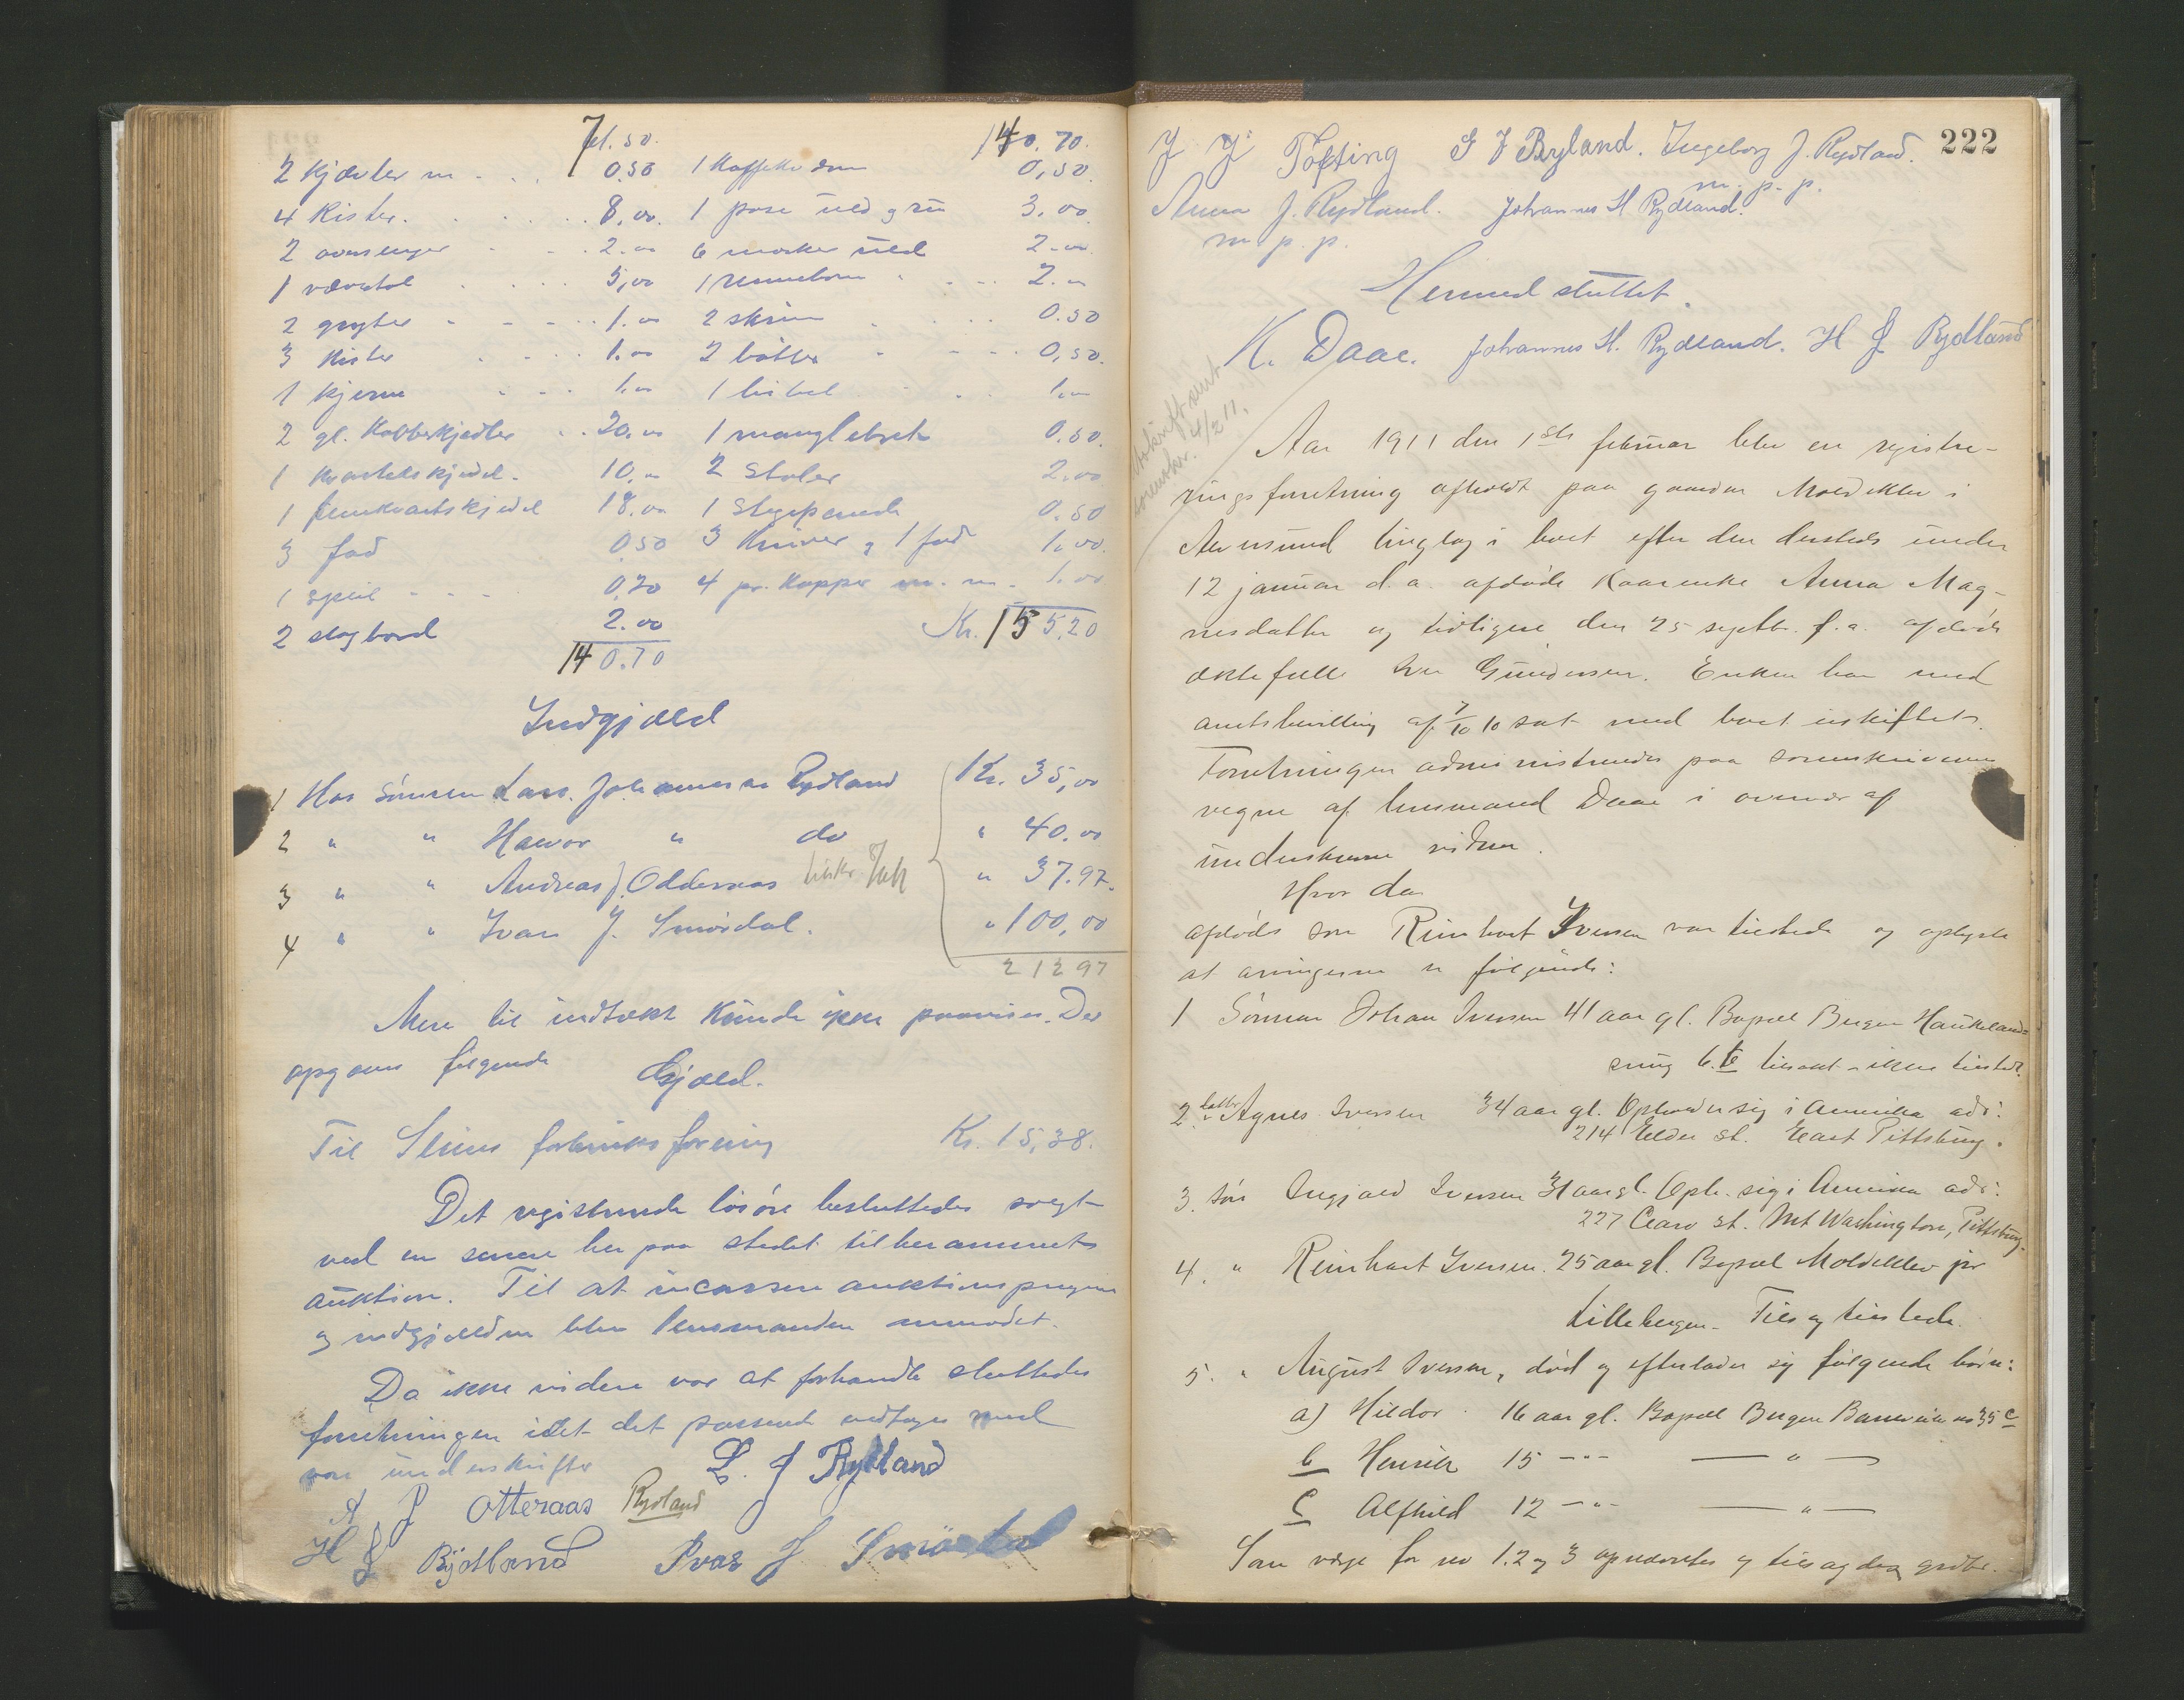 71.50. 140.70.
2 Kjævler m - . . 0.50 1 Kaffeke 0,50.
4 Rister. . . . . . 8,00. 1 pose uld g 3.00
2 - . . 2.00 6 merker uld 2.00
1 vævstol . . . . 5,00 1 . . . 2.00
2 gryter - - - . . 1.00 2 skrin . . . . 0.50
3 Kister . . . . 1.00 2 bøtter - - - - . 0,50.
1 Kjerne . . . 1.00 1 bibel . . 1.00
2 gl. Kobberkjedler . . 20.00 1 manglebret 0.50.
1 Kvartelskjedel - 10.00 2 Stoler 2.00
1 femkvartskjedel 18.00 1 Stegepande 0.50
3 fad 0.50 3 Kniver g 1 fad 1.00.
1 speil - - - 0.20 4 pr. Kopper m. m. - 1.00
2 slagbord 2.00 Kr. 155.20
140.70
Indgjæld
1 Hos sønnen Lars Johannesen Rydland Kr. 35,00
2 " " Havor " do " 40.00
3 " " Andreas J. Odderaas " 37.97.
4 " " Ivar J. Smørdal. " 100,00
212 97
Mere til indtækt kunde ikke paavises. Der
opgaves følgende Gjæld.
Til forbruksforening Kr. 15,38.
Det registrerede løsøre besluttedes solgt
ved en senere her paa stedet tilberammet
auktion. Til at incassere auktionspengene
g indgjælden blev lensmanden anmodet.
Da ikke videre var at forhandle sluttedes
forretningen idet det passerede vedtages med
vor underskrifter L. J Rydland
A J Otteraas Rydland
H J Rydland Ivar J Smørdal
J J Tofting G J Ryland. Ingeborg J. Rydland. 222
m. p. p.
Anna J. Rydland. Johannes H Rydland.
m. p. p.
Hermed sluttet.
K. Daae. Johannes H. Rydland. H J Rydland
4/2 11.
Aar 1911 den 1ste februar blev en registre-
ringsforretning afholdt paa gaarden Moldeklev i
Alversund tinglag i boet efter den dersteds under
12 januar d. a. afdøde Kaarenke Anna Mag-
nesdatter og tidligere den 25 septbr. f. a. afdøde
ektefelle Iver Gundersen. Enken har med
amtsbevilling af 7/10 10 sat med boet uskiftet.
Forretningen administreredes paa sorenskriverens
vegne af lensmand Daae i overvær af
underskrevne vidner.
Hvor da
afdødes søn Reinhart Iversen var tilstede og oplyste
at arvingerne er følgende:
1 Sønnen Johan Iversen 41 aar gl. Bopæl Bergen Haukelands-
6.te tilsagt - ikke tilstede.
2. datter Agnes Iversen 34 aar gl. Opholder sig i Amerika adr:
214 Elder st. East Pittsburg.
3. søn Ingjald Iversen 31 aar gl. Oph. sig i Amerika adr:
227 st. Mt Washington, Pittsburg.
4. " Reinhart Iversen. 25 aar gl. Bopæl Moldeklev pr
Lillebergen - Tils og tilstede.
5. " August Iversen, død g efterlader sig følgende børn:
a) Hildor . 16 aar gl. Bopæl Bergen no 35 c
b Henrik 15 - " - — " —
c Alfhild 12 - " - — " —
Som værge for no 1. 2 og 3 opnævntes g tilsagdes grdbr.